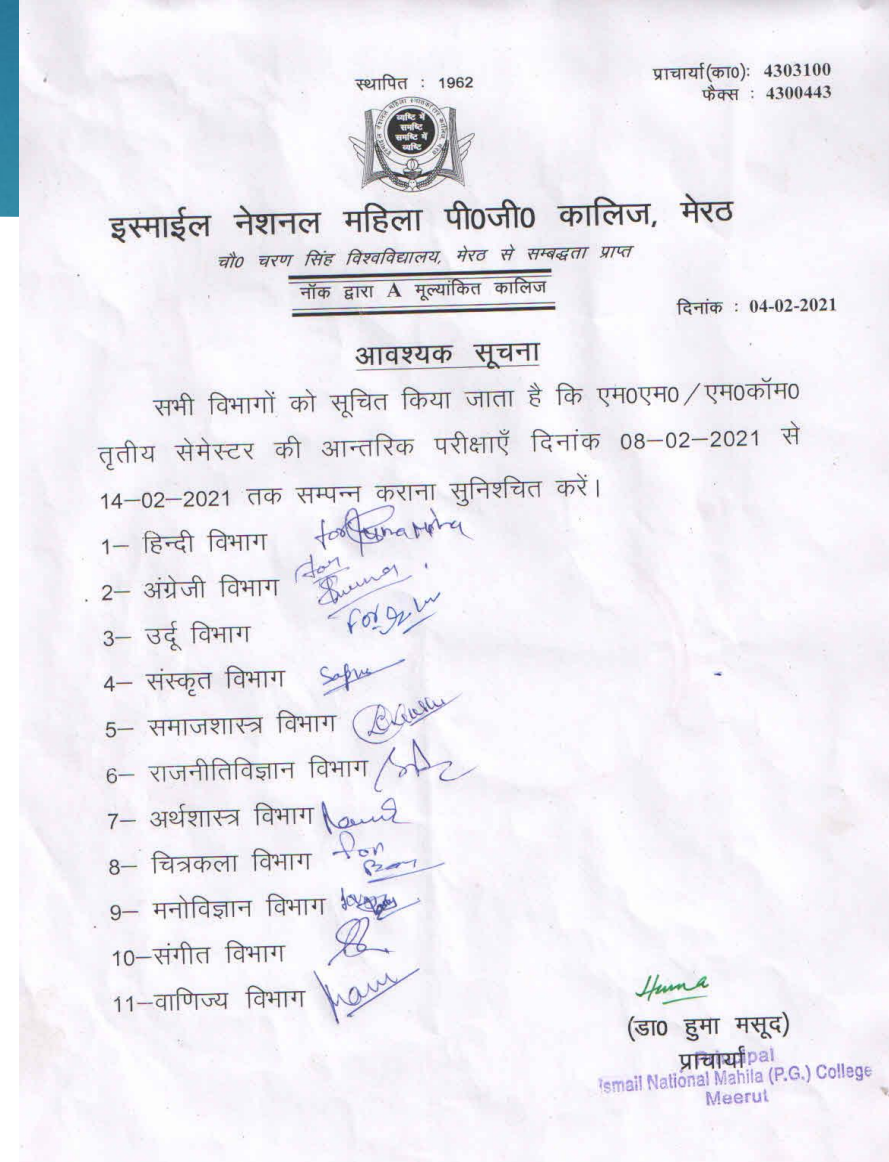 प्राचार्या(का0): 4303100
स्थापित : 1962
फैक्स : 4300443
व्यष्टि में
समष्टि
समष्टि में
व्यष्टि
इस्माईल नेशनल महिला पी0जी0 कालिज, मेरठ
चौ0 चरण सिंह विश्वविद्यालय, मेरठ से सम्बद्धता प्राप्त
नॉक द्वारा A मूल्यांकित कालिज
दिनांक : 04-02-2021
आवश्यक सूचना
सभी विभागों को सूचित किया जाता है कि एम0एम0/एम0कॉम0
तृतीय सेमेस्टर की आन्तरिक परीक्षाएँ दिनांक 08–02–2021 से
14–02–2021 तक सम्पन्न कराना सुनिश्चित करें।
1– हिन्दी विभाग for
2– अंग्रेजी विभाग for
3– उर्दू विभाग For
4– संस्कृत विभाग
5– समाजशास्त्र विभाग
6– राजनीतिविज्ञान विभाग
7– अर्थशास्त्र विभाग
8– चित्रकला विभाग for
9– मनोविज्ञान विभाग
10–संगीत विभाग
11–वाणिज्य विभाग
Huma
(डा0 हुमा मसूद)
प्राचार्या
Principal
Ismail National Mahila (P.G.) College
Meerut